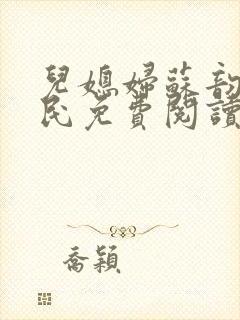 兒媳婦蘇韵
民免費閱讀
喬穎